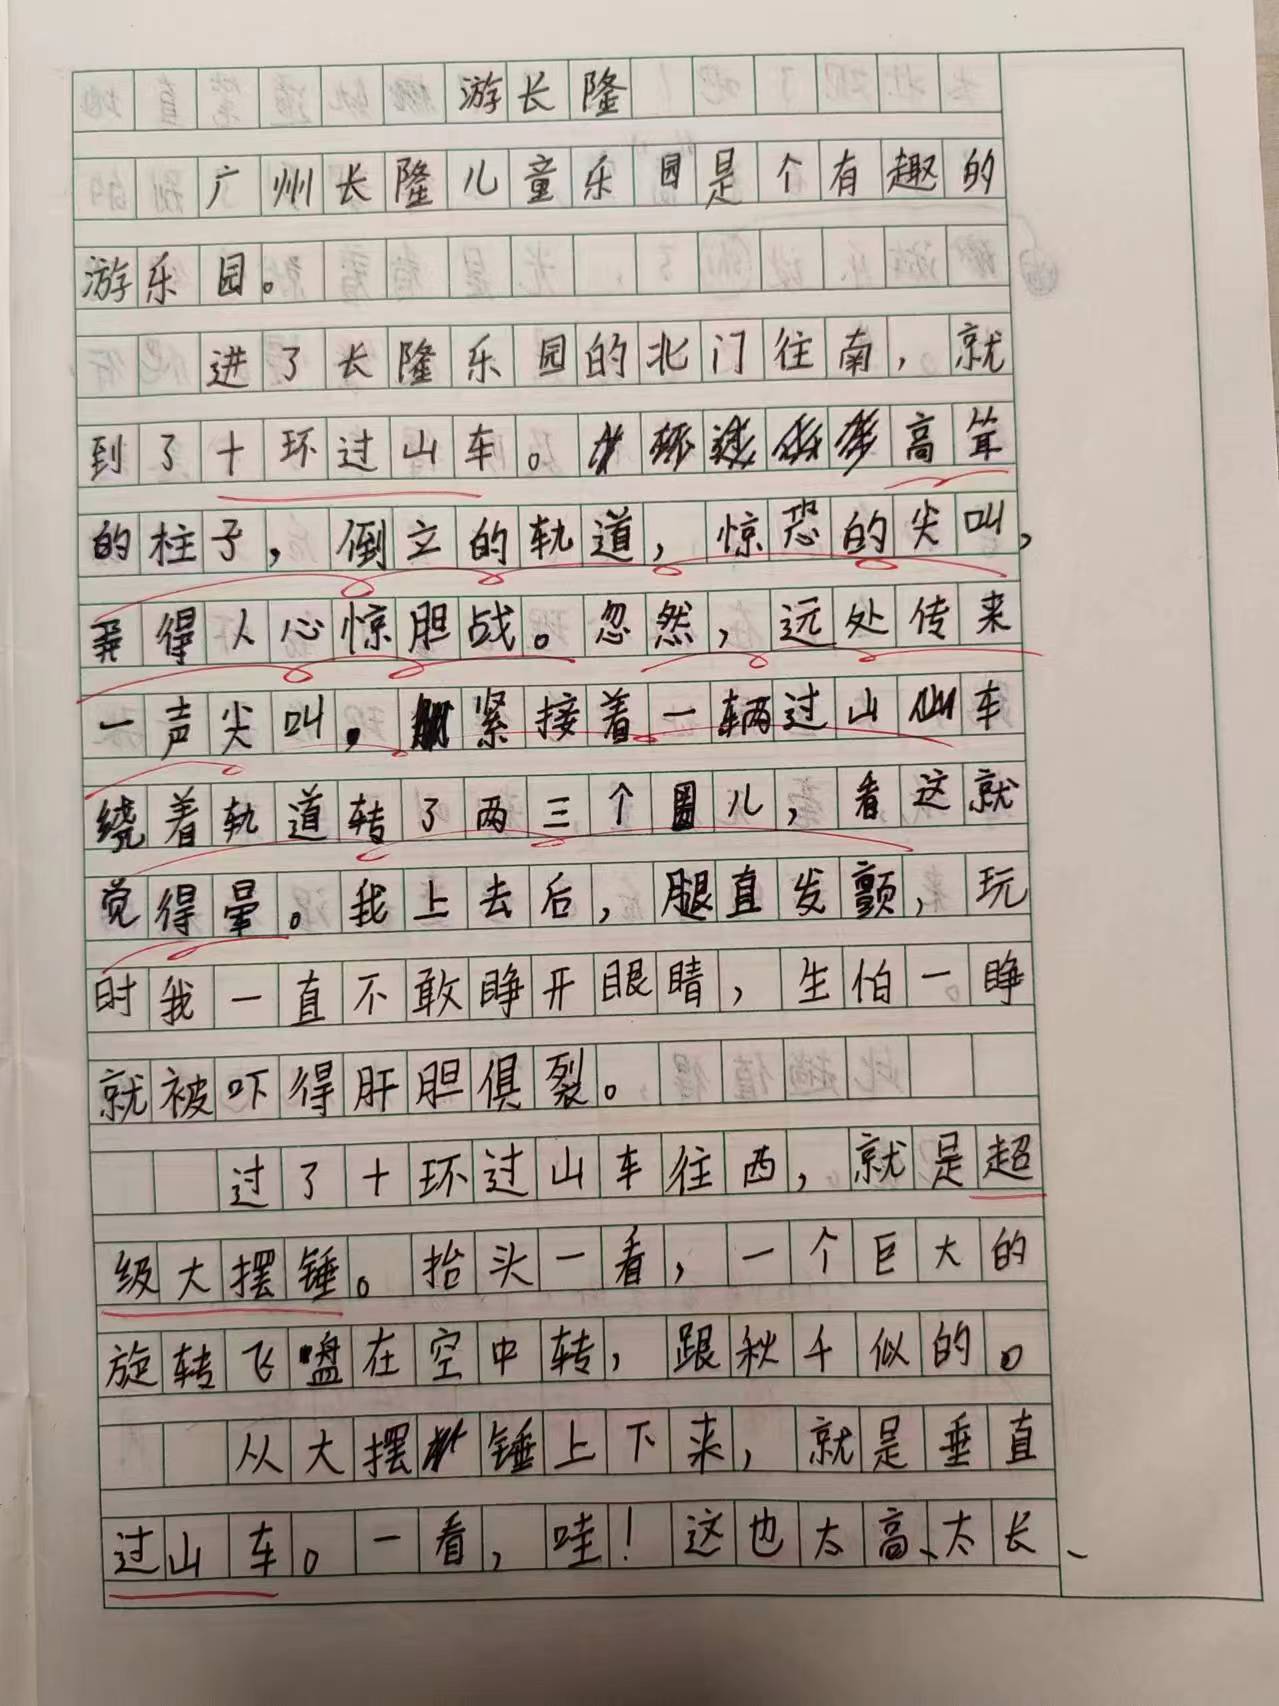 游长隆
广州长隆儿童乐园是个有趣的
游乐园。
进了长隆乐园的北门往南，就
到了十环过山车。高耸
的柱子，倒立的轨道，惊恐的尖叫，
弄得人心惊胆战。忽然，远处传来
一声尖叫，紧接着一辆过山车
绕着轨道转了两三个圈儿，看这就
觉得晕。我上去后，腿直发颤，玩
时我一直不敢睁开眼睛，生怕一睁
就被吓得肝胆俱裂。
过了十环过山车往西，就是超
级大摆锤。抬头一看，一个巨大的
旋转飞盘在空中转，跟秋千似的。
从大摆锤上下来，就是垂直
过山车。一看，哇！这也太高、太长、